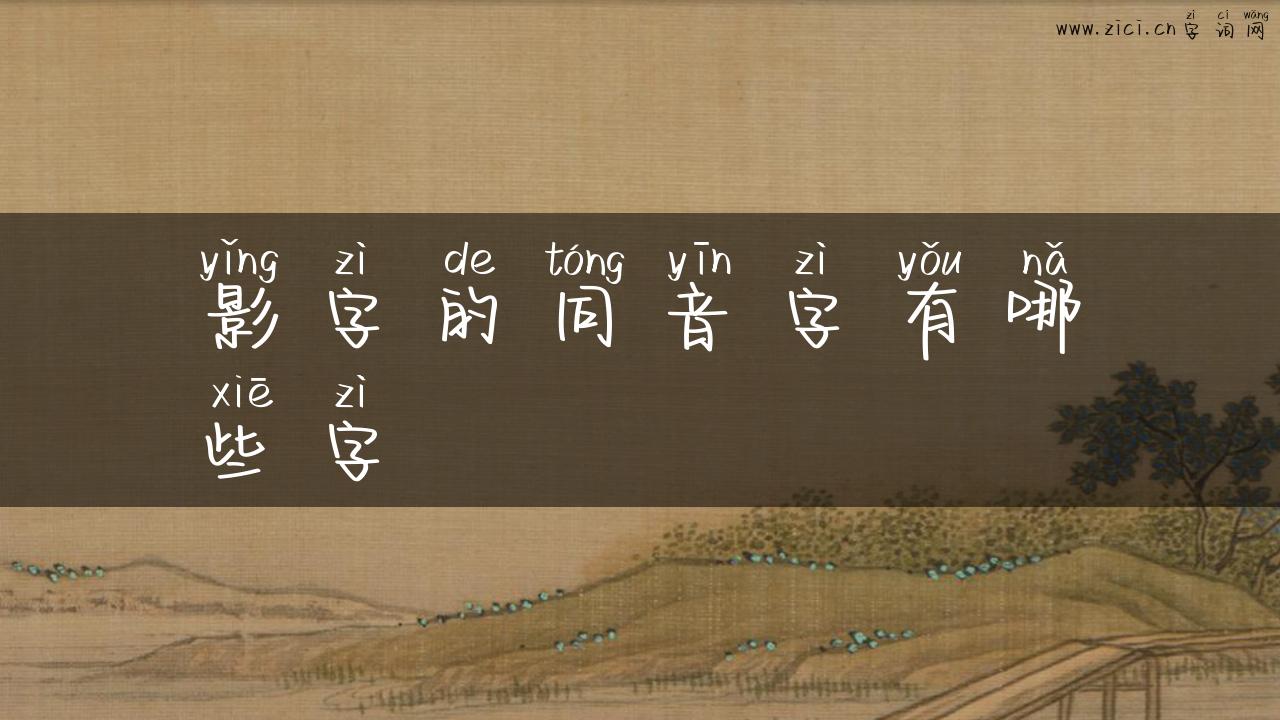 zì cí wǎng
www.zici.cn字词网
yǐng zì de tóng yīn zì yǒu nǎ
影字的同音字有哪
xiē zì
些字